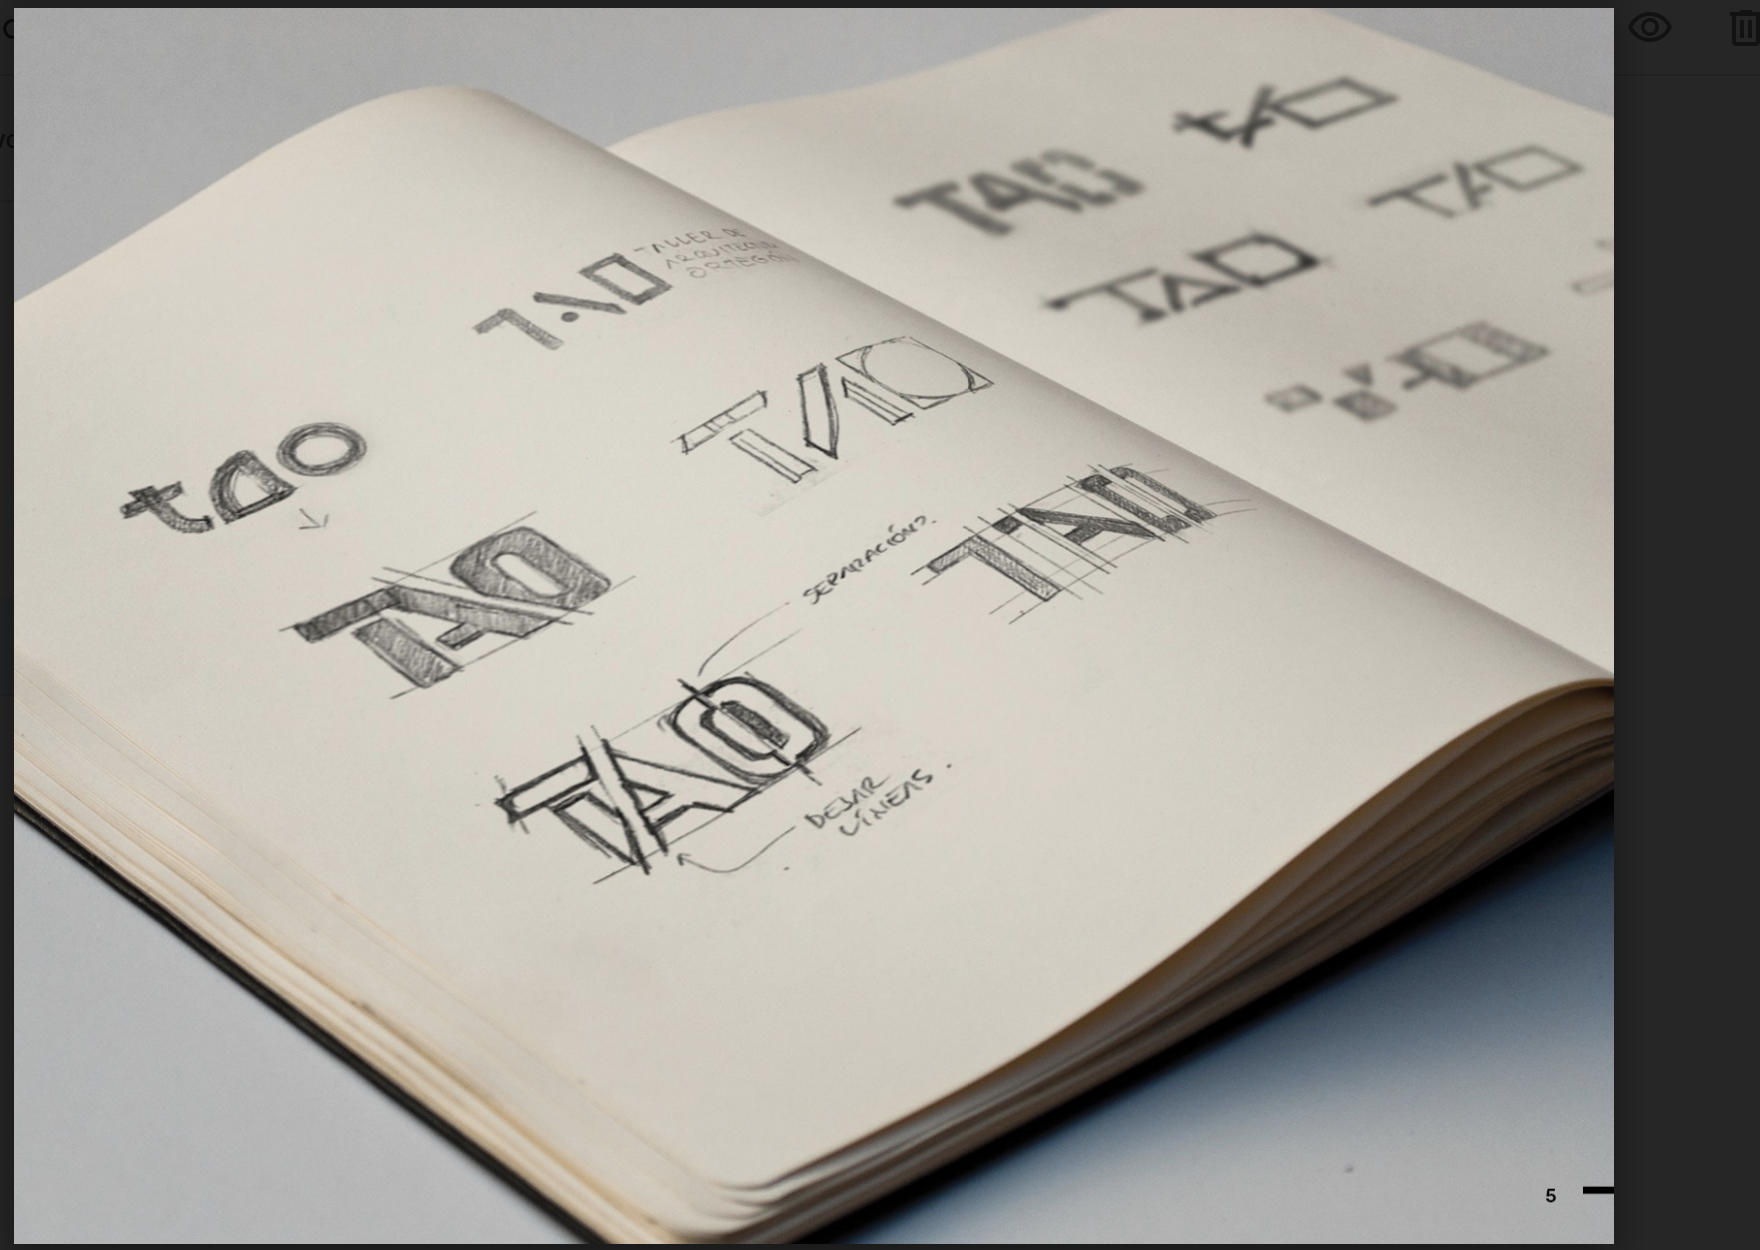 TAO
TALLER DE
ARQUITECTURA
ORTEGÓN
tao
TAO
TAO
TAO
SEPARACIÓN?
TAO
DEJAR
LÍNEAS.
TAO
tao
TAO
TAO
5